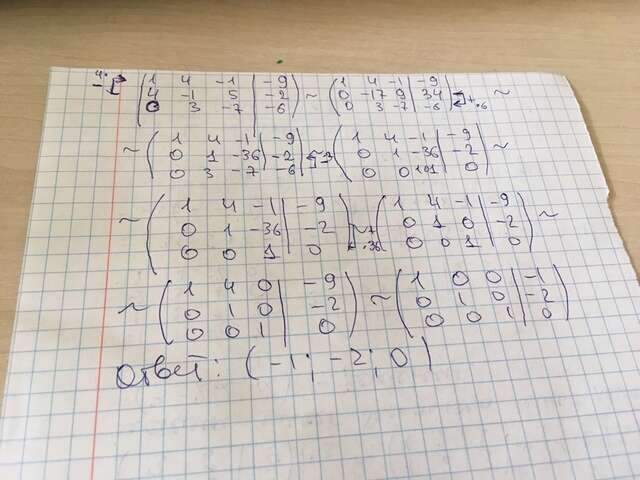 4· − (1 4 -1 | -9; 4 -1 5 | -2; 0 3 -7 | -6) ~ (1 4 -1 | -9; 0 -17 9 | 34; 0 3 -7 | -6) + ·6 ~
~ (1 4 -1 | -9; 0 1 -36 | -2; 0 3 -7 | -6) -3 (1 4 -1 | -9; 0 1 -36 | -2; 0 0 101 | 0) ~
~ (1 4 -1 | -9; 0 1 -36 | -2; 0 0 1 | 0) + ·36 (1 4 -1 | -9; 0 1 0 | -2; 0 0 1 | 0) ~
~ (1 4 0 | -9; 0 1 0 | -2; 0 0 1 | 0) ~ (1 0 0 | -1; 0 1 0 | -2; 0 0 1 | 0)
Ответ: (-1; -2; 0)